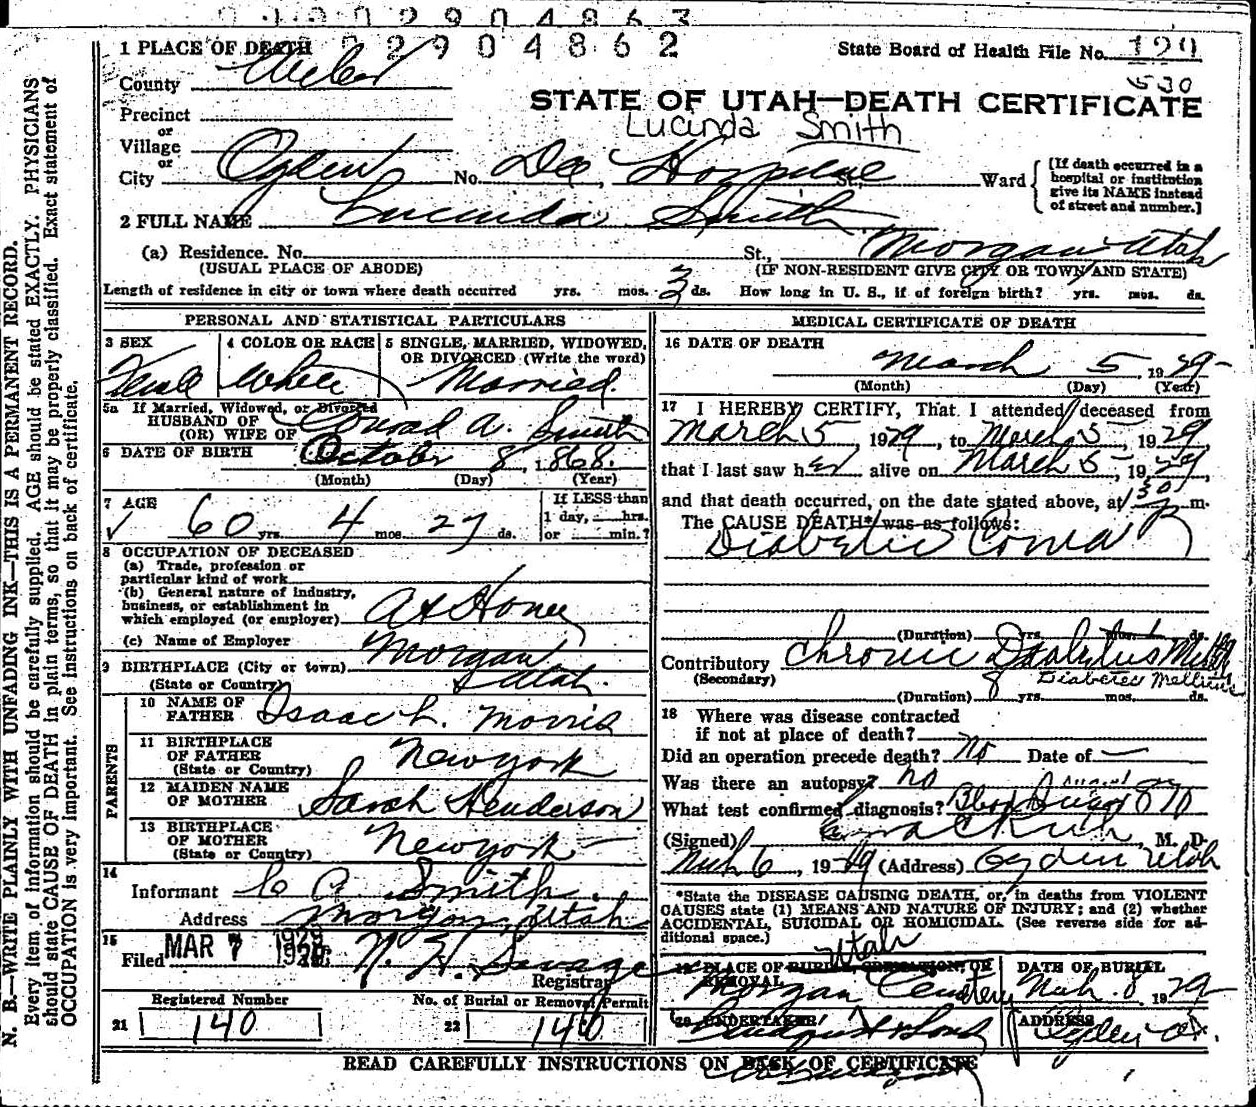 0 1 0 0 2 9 0 4 8 6 3
0 2 9 0 4 8 6 2
1 PLACE OF DEATH
State Board of Health File No. 129
530
County Weber
STATE OF UTAH—DEATH CERTIFICATE
Precinct
Lucinda Smith
or
Village
or
City Ogden No. Dee Hospital St., Ward
[If death occurred in a
hospital or institution
give its NAME instead
of street and number.]
2 FULL NAME Lucinda Smith
(a) Residence. No. St., Morgan, Utah
(USUAL PLACE OF ABODE) (IF NON-RESIDENT GIVE CITY OR TOWN AND STATE)
Length of residence in city or town where death occurred yrs. mos. 3 ds. How long in U. S., if of foreign birth? yrs. mos. ds.
PERSONAL AND STATISTICAL PARTICULARS
3 SEX 4 COLOR OR RACE 5 SINGLE, MARRIED, WIDOWED,
OR DIVORCED (Write the word)
Female White Married.
5a If Married, Widowed, or Divorced
HUSBAND OF
(OR) WIFE OF Conrad A. Smith
6 DATE OF BIRTH October 8, 1868.
(Month) (Day) (Year)
7 AGE If LESS than
60 yrs. 4 mos. 27 ds. 1 day, hrs.
or min.?
8 OCCUPATION OF DECEASED
(a) Trade, profession or
particular kind of work
(b) General nature of industry,
business, or establishment in
which employed (or employer) At Home
(c) Name of Employer
9 BIRTHPLACE (City or town) Morgan
(State or Country) Utah.
PARENTS
10 NAME OF
FATHER Isaac L. Morris
11 BIRTHPLACE
OF FATHER New york
(State or Country)
12 MAIDEN NAME
OF MOTHER Sarah Henderson
13 BIRTHPLACE
OF MOTHER New york
(State or Country)
14
Informant C A Smith.
Address Morgan, Utah
15 1929
Filed MAR 7 192 N. H. Savage
Registrar
Registered Number No. of Burial or Removal Permit
21 140 22 140
MEDICAL CERTIFICATE OF DEATH
16 DATE OF DEATH
March 5, 1929
(Month) (Day) (Year)
17 I HEREBY CERTIFY, That I attended deceased from
March 5, 1929, to March 5, 1929,
that I last saw her alive on March 5, 1929,
and that death occurred, on the date stated above, at 1 30 P m.
The CAUSE DEATH* was as follows:
Diabetic Coma
(Duration) yrs. mos. 1 ds.
Contributory Chronic Diabetus Mell
(Secondary) Diabetes Mellitus
(Duration) 8 yrs. mos. ds.
18 Where was disease contracted
if not at place of death?
Did an operation precede death? No Date of
Was there an autopsy? no
What test confirmed diagnosis? Blood Sugar 870
(Signed) M. D.
Mch 6, 1929 (Address) Ogden Utah
*State the DISEASE CAUSING DEATH, or, in deaths from VIOLENT
CAUSES state (1) MEANS AND NATURE OF INJURY; and (2) whether
ACCIDENTAL, SUICIDAL OR HOMICIDAL. (See reverse side for ad-
ditional space.)
Utah
19 PLACE OF BURIAL, CREMATION, OR DATE OF BURIAL
REMOVAL
Morgan Cemetery Mch. 8 1929
20 UNDERTAKER ADDRESS
& Sons Ogden Ut.
READ CAREFULLY INSTRUCTIONS ON BACK OF CERTIFICATE
N. B.—WRITE PLAINLY WITH UNFADING INK—THIS IS A PERMANENT RECORD.
Every item of information should be carefully supplied. AGE should be stated EXACTLY. PHYSICIANS
should state CAUSE OF DEATH in plain terms, so that it may be properly classified. Exact statement of
OCCUPATION is very important. See instructions on back of certificate.